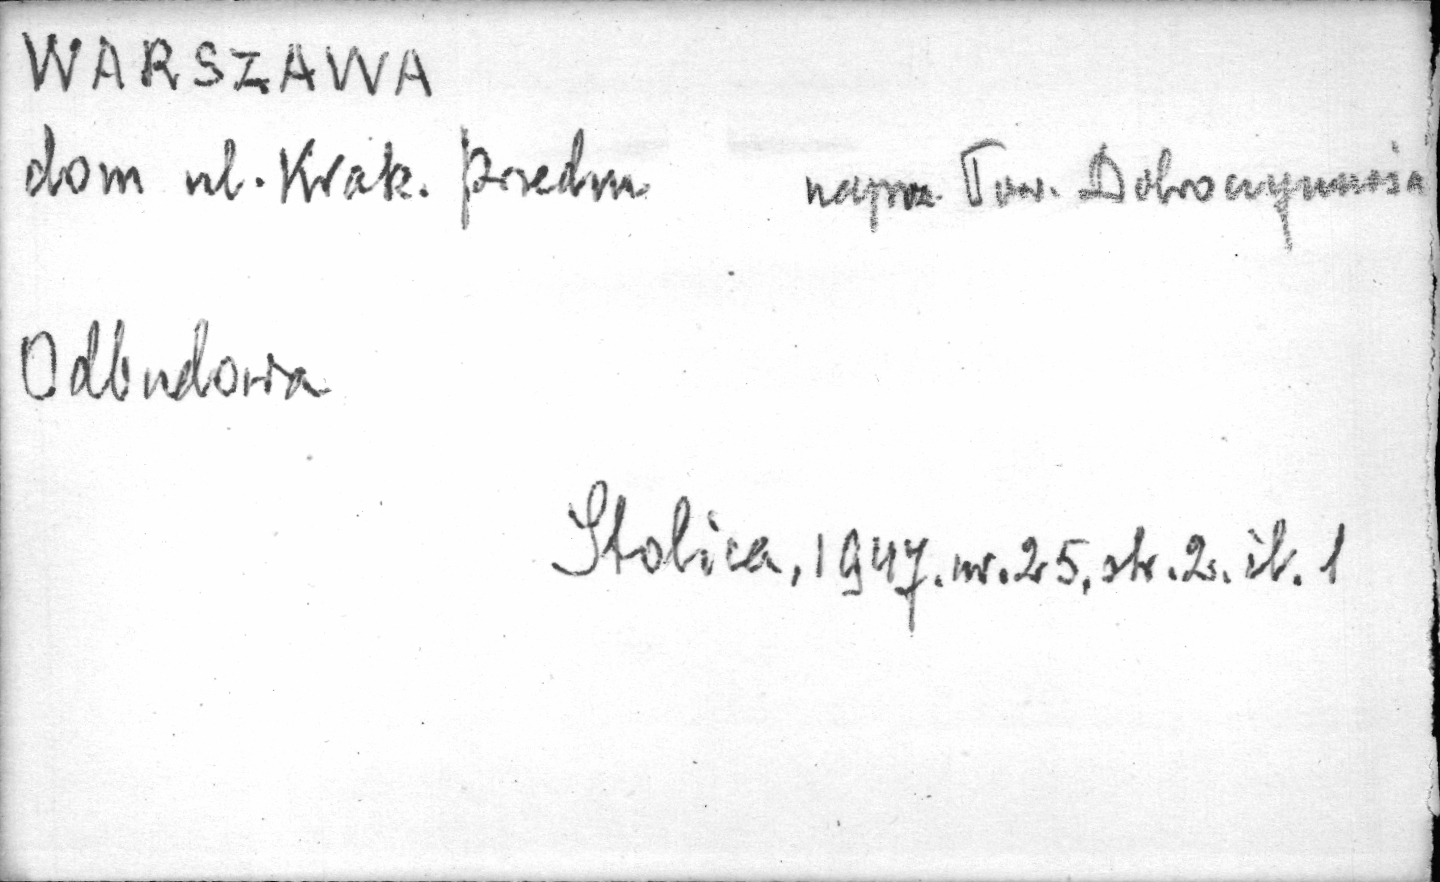 WARSZAWA
dom ul. Krak. Przedm. naprz. Tow. Dobroczynnośc
Odbudowa
Stolica, 1947. nr. 25, str. 2. il. 1